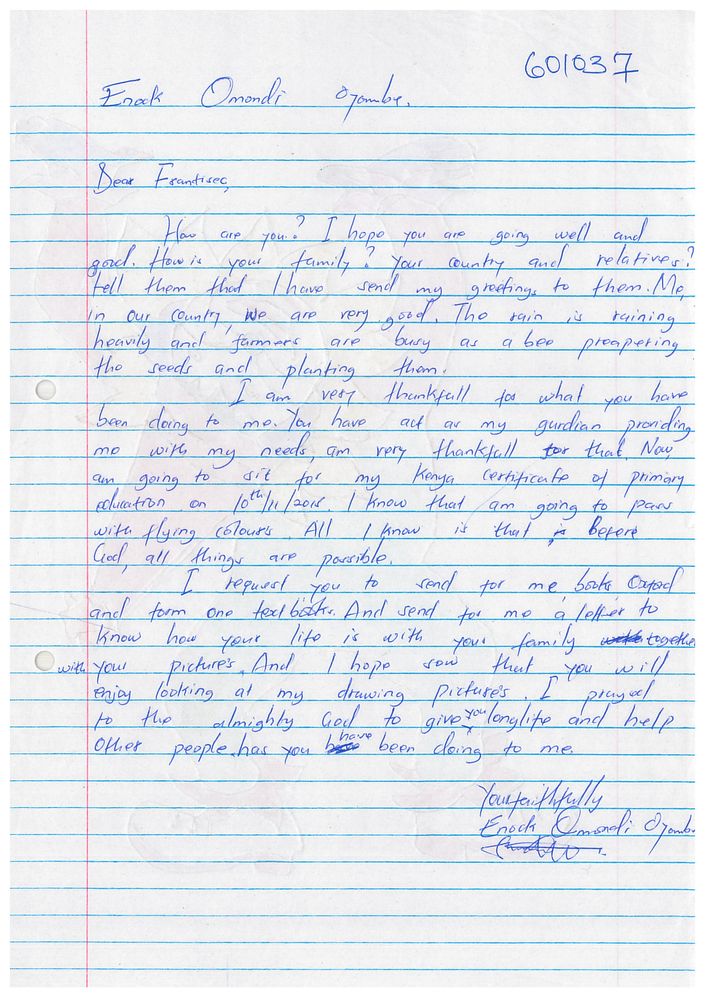 601037
Enock Omondi Ojambo.
Dear Frantisec,
How are you? I hope you are going well and
good. How is your family? Your country and relatives?
tell them that I have send my greetings to them. Me,
in our country, we are very good. The rain is raining
heavily and farmers are busy as a bee preapering
the seeds and planting them.
I am very thankfull for what you have
been doing to me. You have act as my gurdian providing
me with my needs, am very thankfull for that. Now
am going to sit for my Kenya certificate of primary
education on 10th/11/2015. I know that am going to pass
with flying colours. All I know is that, Before
God, all things are possible.
I request you to send for me, books Oxford
and form one textbooks. And send for me a letter to
know how your life is with your family together
with your pictures, And I hope saw that you will
enjoy looking at my drawing pictures. I prayed
to the almighty God to give you longlife and help
Other people has you have been doing to me.
Yours faithfully
Enock Omondi Ojambo